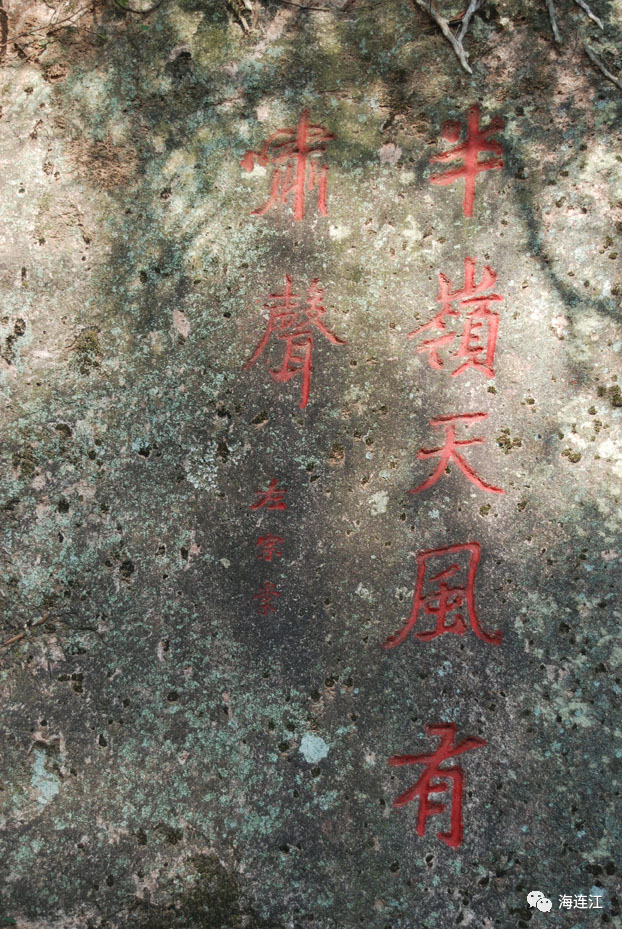 半嶺天風有
嘯聲
左宗棠
海连江